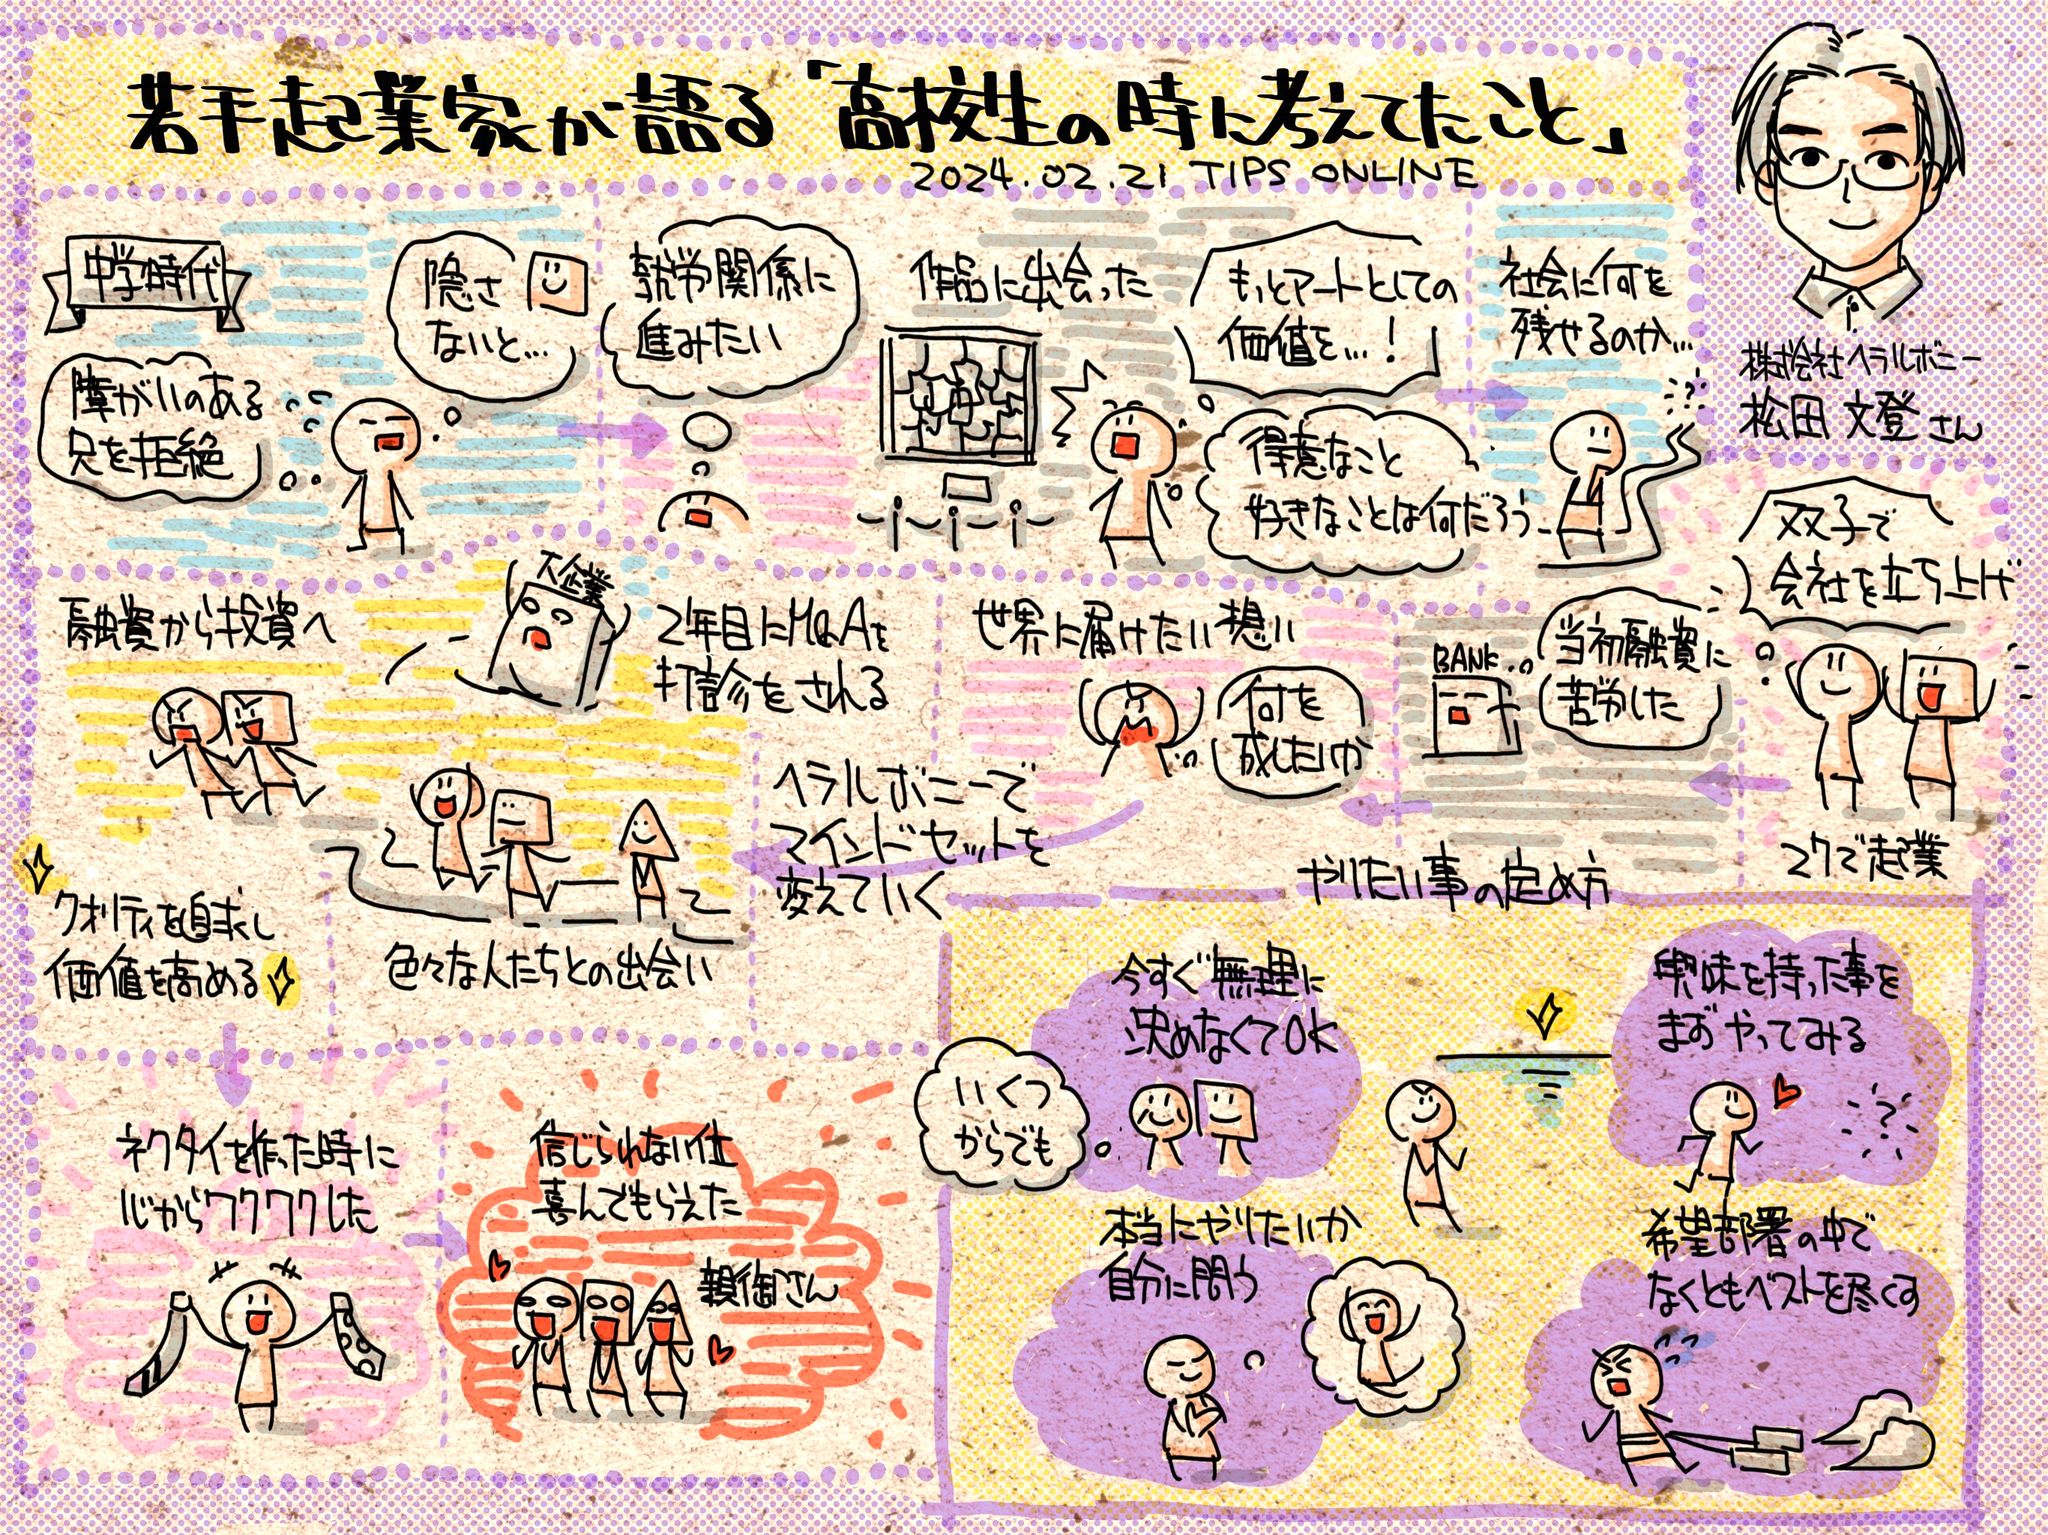 若手起業家が語る「高校生の時に考えてたこと」
2024.02.21 TIPS ONLINE
株式会社ヘラルボニー
松田 文登さん
中学時代
障がいのある
兄を拒絶
隠さ
ないと…
就労関係に
進みたい
作品に出会った
もっとアートとしての
価値を…!
得意なこと
好きなことは何だろう
社会に何を
残せるのか…
?
双子で
会社を立ち上げ
27で起業
当初融資に
苦労した
BANK
世界に届けたい想い
何を
成したいか
ヘラルボニーで
マインドセットを
変えていく
大企業
2年目にM&Aを
打診をされる
色々な人たちとの出会い
融資から投資へ
クオリティを追求し
価値を高める
ネクタイを作った時に
心からワクワクした
信じられない位
喜んでもらえた
親御さん
やりたい事の定め方
今すぐ無理に
決めなくてOK
いくつ
からでも
興味を持った事を
まずやってみる
?
本当にやりたいか
自分に問う
希望部署の中で
なくともベストを尽くす